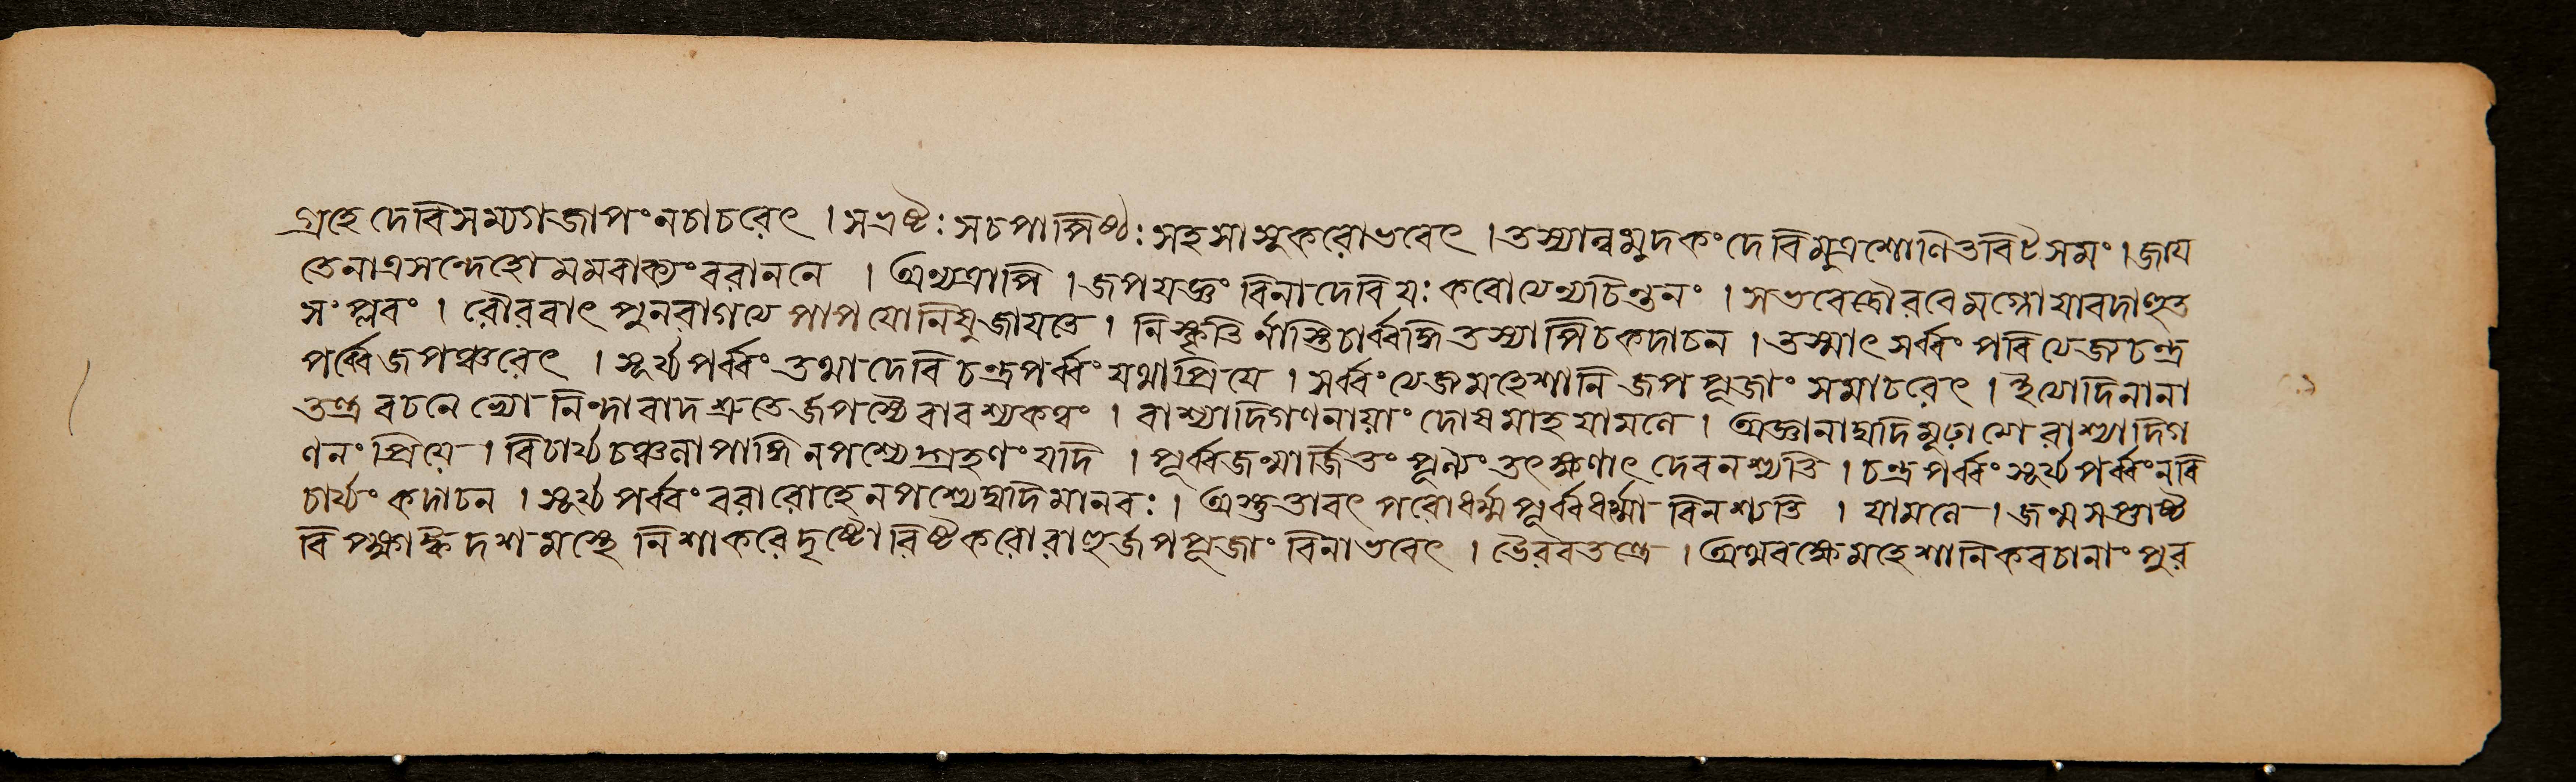 গ্রহে দেবি সম্যগ জাপং ন চাচরেৎ । স ভ্রষ্টঃ স চ পাপিষ্ঠঃ সহসা সুকরো ভবেৎ । তস্যান্নমুদকং দেবি মুত্রশোণিতবিট সমং । জায
তে নাত্র সন্দেহো মম বাক্যং বরাননে । অন্যত্রাপি । জপযজ্ঞং বিনা দেবি যঃ করোত্যেন্যচিন্তনং । স ভবেদ্রৌরবে মগ্নো যাবদাহুত
সংপ্লবং । রৌরবাৎ পুনরাগত্যে পাপযোনিষু জাযতে । নিস্কৃতি র্নাস্তি চার্ব্বঙ্গি তস্যাপি চ কদাচন । তস্মাৎ সর্ব্বং পরিত্যেজ্য চন্দ্র
পর্ব্বে জপঞ্চরেৎ । সূর্য্যপর্ব্বং তথা দেবি চন্দ্রপর্ব্বং যথা প্রিযে । সর্ব্বং ত্যেজ্য মহেশানি জপপূজাং সমাচরেৎ । ইত্যোদি নানা
তন্ত্রবচনেভ্যো নিন্দাবাদশ্রুতের্জপস্যৈবাবশ্যকত্বং । রাশ্যাদিগণনায়াং দোষমাহ যামলে । অজ্ঞানাদ্যদি মূঢ়াত্মো রাশ্যাদিগ
ণনং প্রিয়ে । বিচার্য্য চঞ্চলাপাঙ্গি ন পশ্যেদ্গ্রহণং যদি । পূর্ব্বজন্মার্জিতং পূন্যং তৎক্ষণাৎ দেব নশ্যতি । চন্দ্রপর্ব্বং সূর্য্যপর্ব্বং ন বি
চার্য্যং কদাচন । সূর্য্যপর্ব্বং বরারোহে ন পশ্যেদ্যদি মানবঃ । অস্তু তাবৎ পরোধর্ম্ম পূর্ব্বধর্ম্মো বিনশ্যতি । যামলে । জন্মসপ্তাষ্ট
বিপ্ফাঙ্ক দশমস্থে নিশাকরে দৃষ্টো রিষ্টকরো রাহুর্জপপূজাং বিনা ভবেৎ । ভৈরবতন্ত্রে । অথ বক্ষে মহেশানি কবচানাং পুর